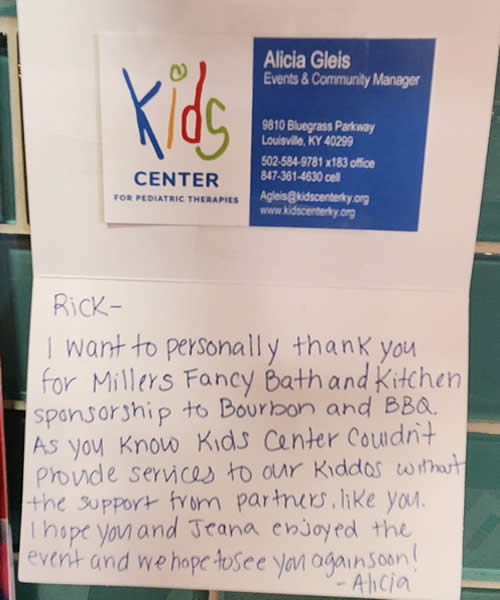 Kids
CENTER
FOR PEDIATRIC THERAPIES
Alicia Gleis
Events & Community Manager
9810 Bluegrass Parkway
Louisville, KY 40299
502-584-9781 x183 office
847-361-4630 cell
Agleis@kidscenterky.org
www.kidscenterky.org
Rick-
I want to personally thank you
for Millers Fancy Bath and Kitchen
sponsorship to Bourbon and BBQ.
As you know Kids Center Couldn't
provide services to our kiddos without
the support from partners, like you.
I hope you and Jeana enjoyed the
event and we hope to see you again soon!
- Alicia